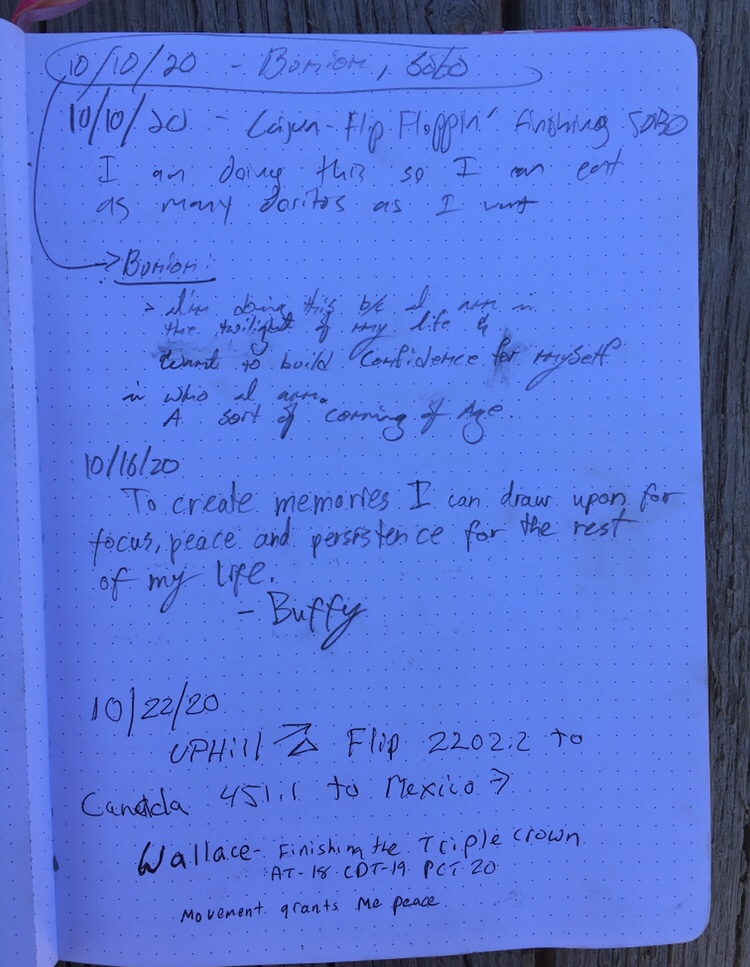 10/10/20 - Bunion, SOBO
10/10/20 - Cajun - Flip Floppin' finishing SOBO
I am doing this so I can eat
as many doritos as I want
Bunion:
I'm doing this b/c I am in
the twilight of my life &
want to build confidence for myself
in who I am.
A sort of coming of Age.
10/16/20
To create memories I can draw upon for
focus, peace and persistence for the rest
of my life.
- Buffy
10/22/20
UPHill Flip 2202.2 to
Canada 451.1 to Mexico →
Wallace - Finishing the Triple Crown
AT-18 CDT-19 PCT 20
Movement grants me peace